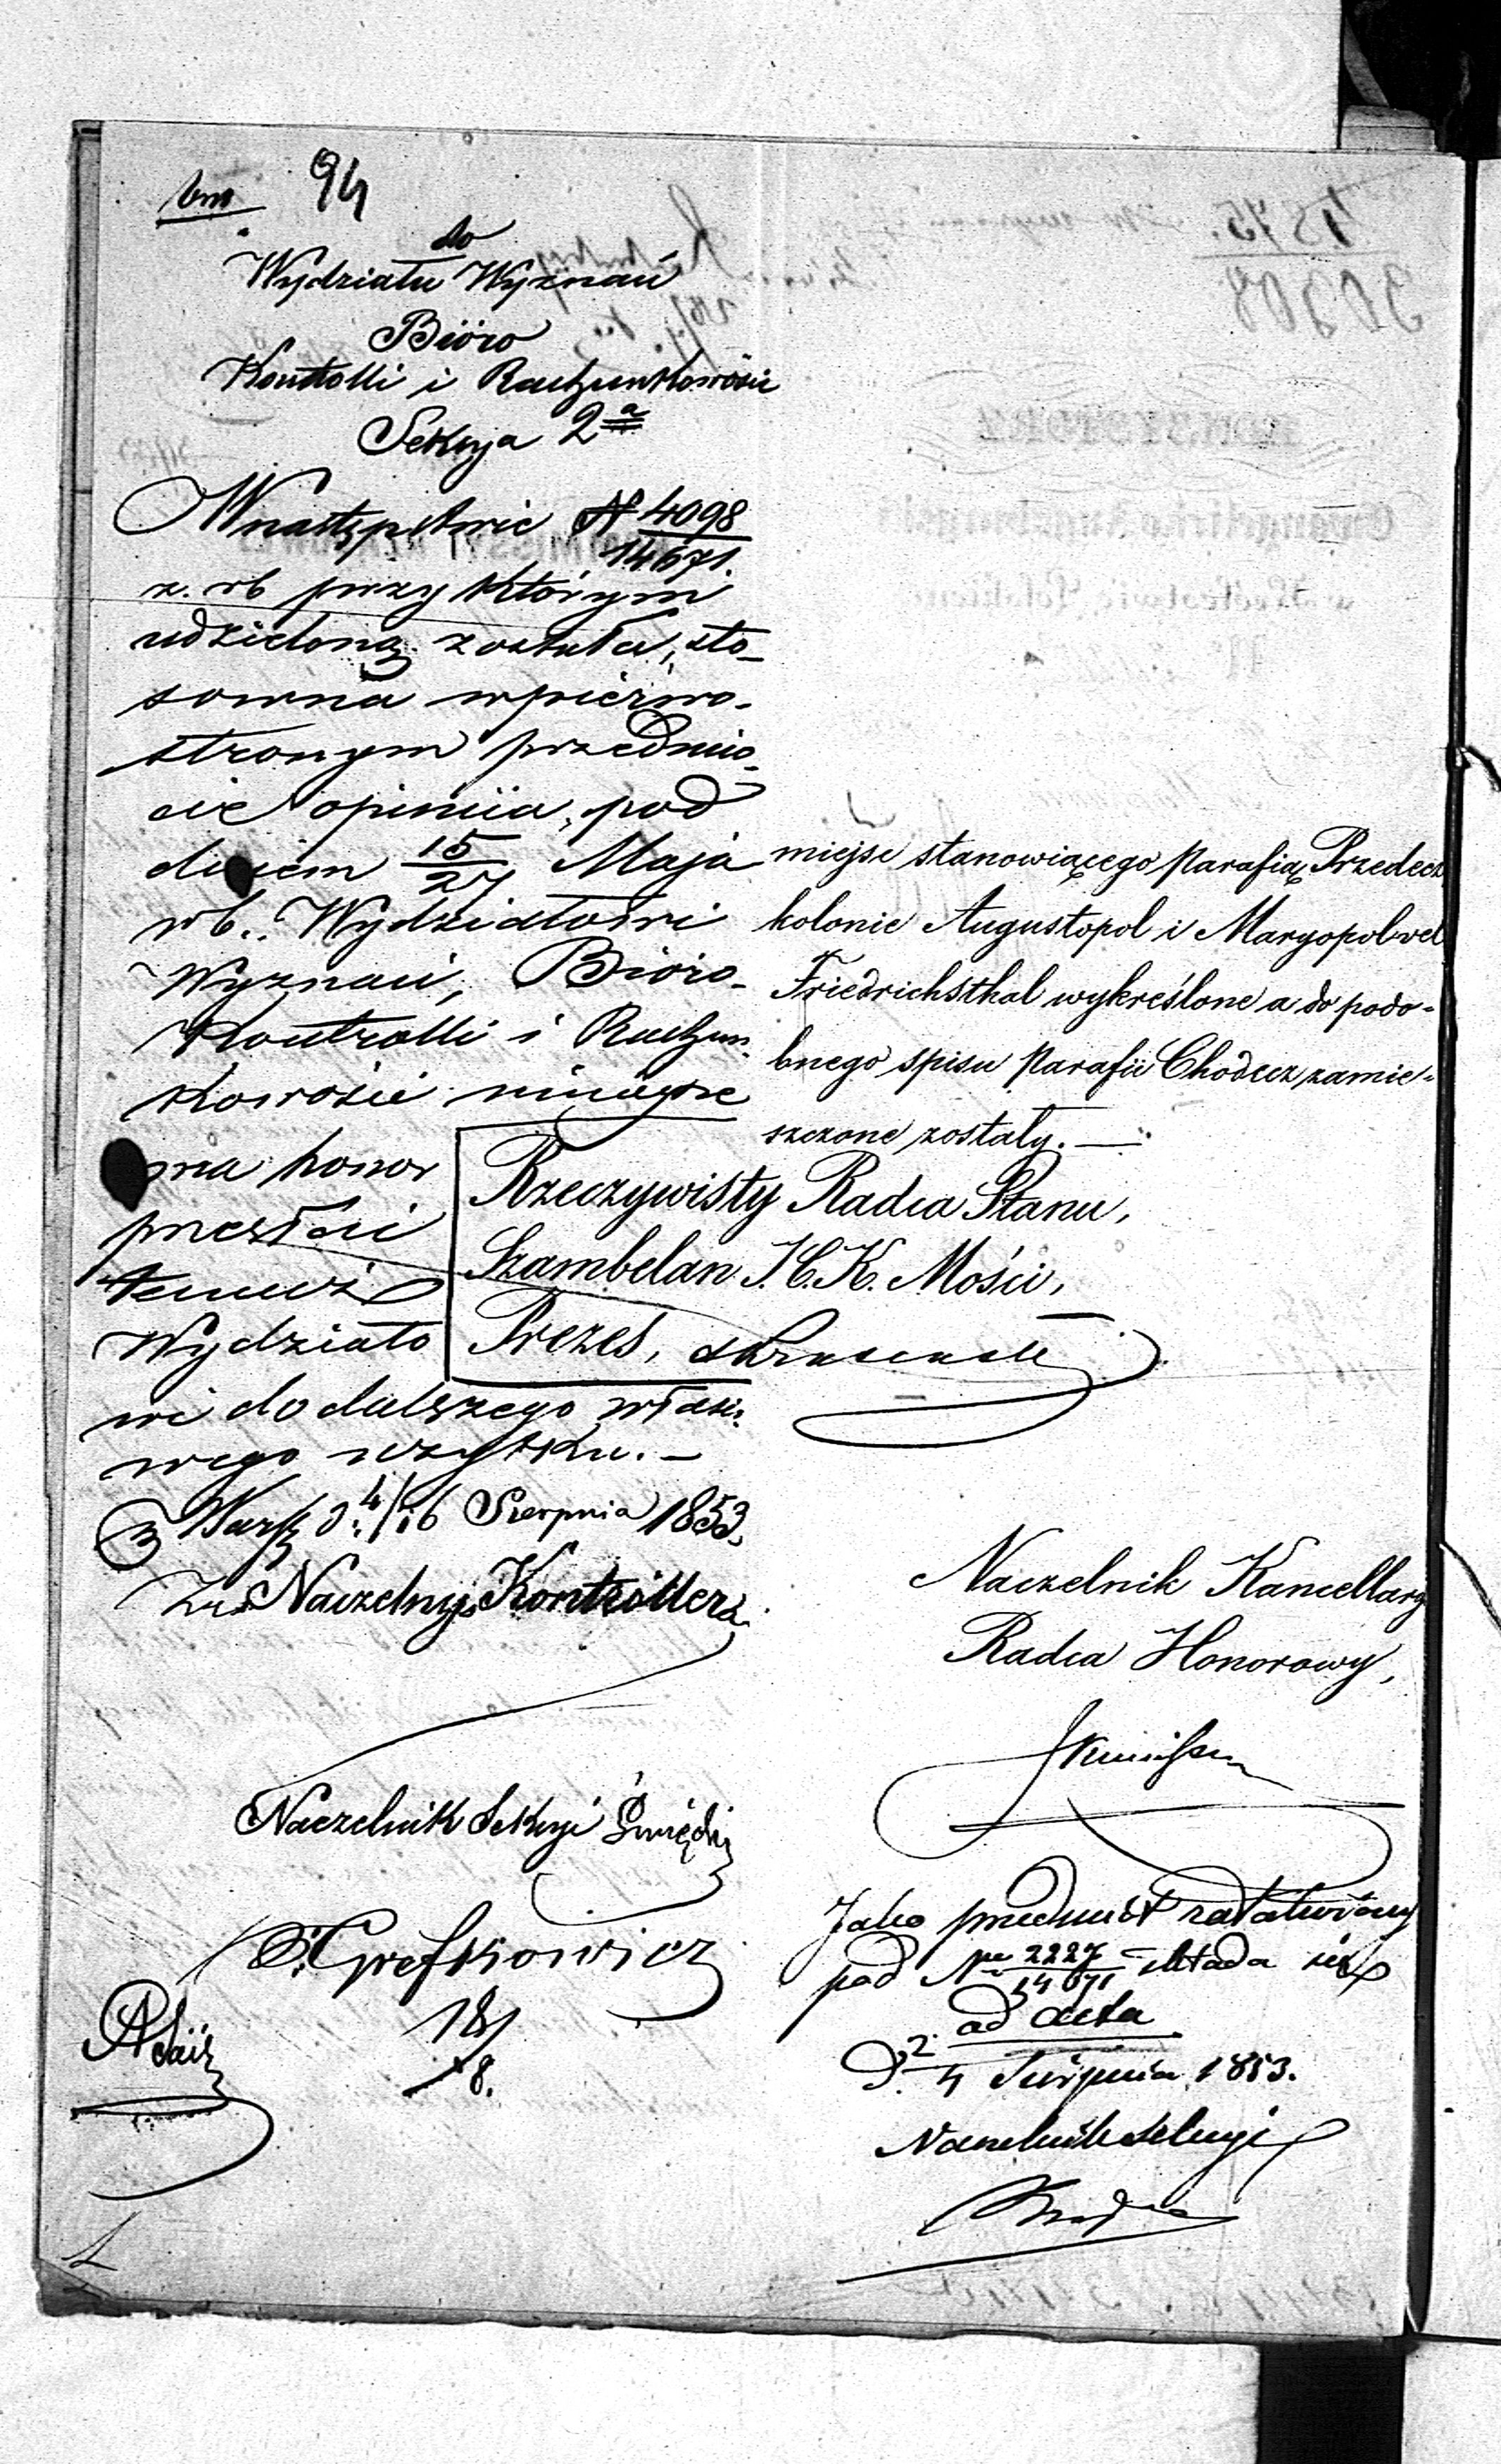 94
do
Wydziału Wyznań
Bióro
Kontrolli i Rachunkowości
Sekcya 2a
W następstwie N 4098/14671.
z. rb przy którym
udzieloną została, sto-
sowna w pierwo-
stronym przedmio-
cie opiniia, pod
dniem 15/27 Maja
rb. Wydziałowi
Wyznań, Bióro
Kontrolli i Rachun-
kowości niniejsze
ma honor
przesłać
temuż
Wydziało
wi do dalszego właści-
wego użytku. –
w Warsz d. 4/16 Sierpnia 1853.
Za Naczelnego Kontrollera
Naczelnik Sekcyi
18/8.
miejsc stanowiącego Parafią Przedecz
kolonie Augustopol i Maryopol vel
Friedrichsthal wykreślone a do podo-
bnego spisu Parafii Chodecz zamie-
szczone zostały. —
Rzeczywisty Radca Stanu,
Szambelan J. C. K. Mości,
Prezes,
Naczelnik Kancellaryi
Radca Honorowy,
Jako przedmiot załatwiony
pod Nr 2227/14671 składa się
ad acta
d. 2/4 Sierpnia 1853.
Naczelnik Sekcyi